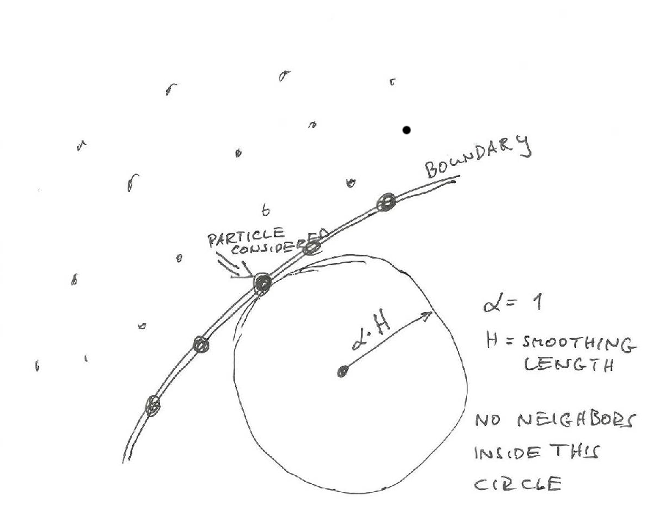 BOUNDARY
PARTICLE
CONSIDERED
α·H
α = 1
H = SMOOTHING
LENGTH
NO NEIGHBORS
INSIDE THIS
CIRCLE